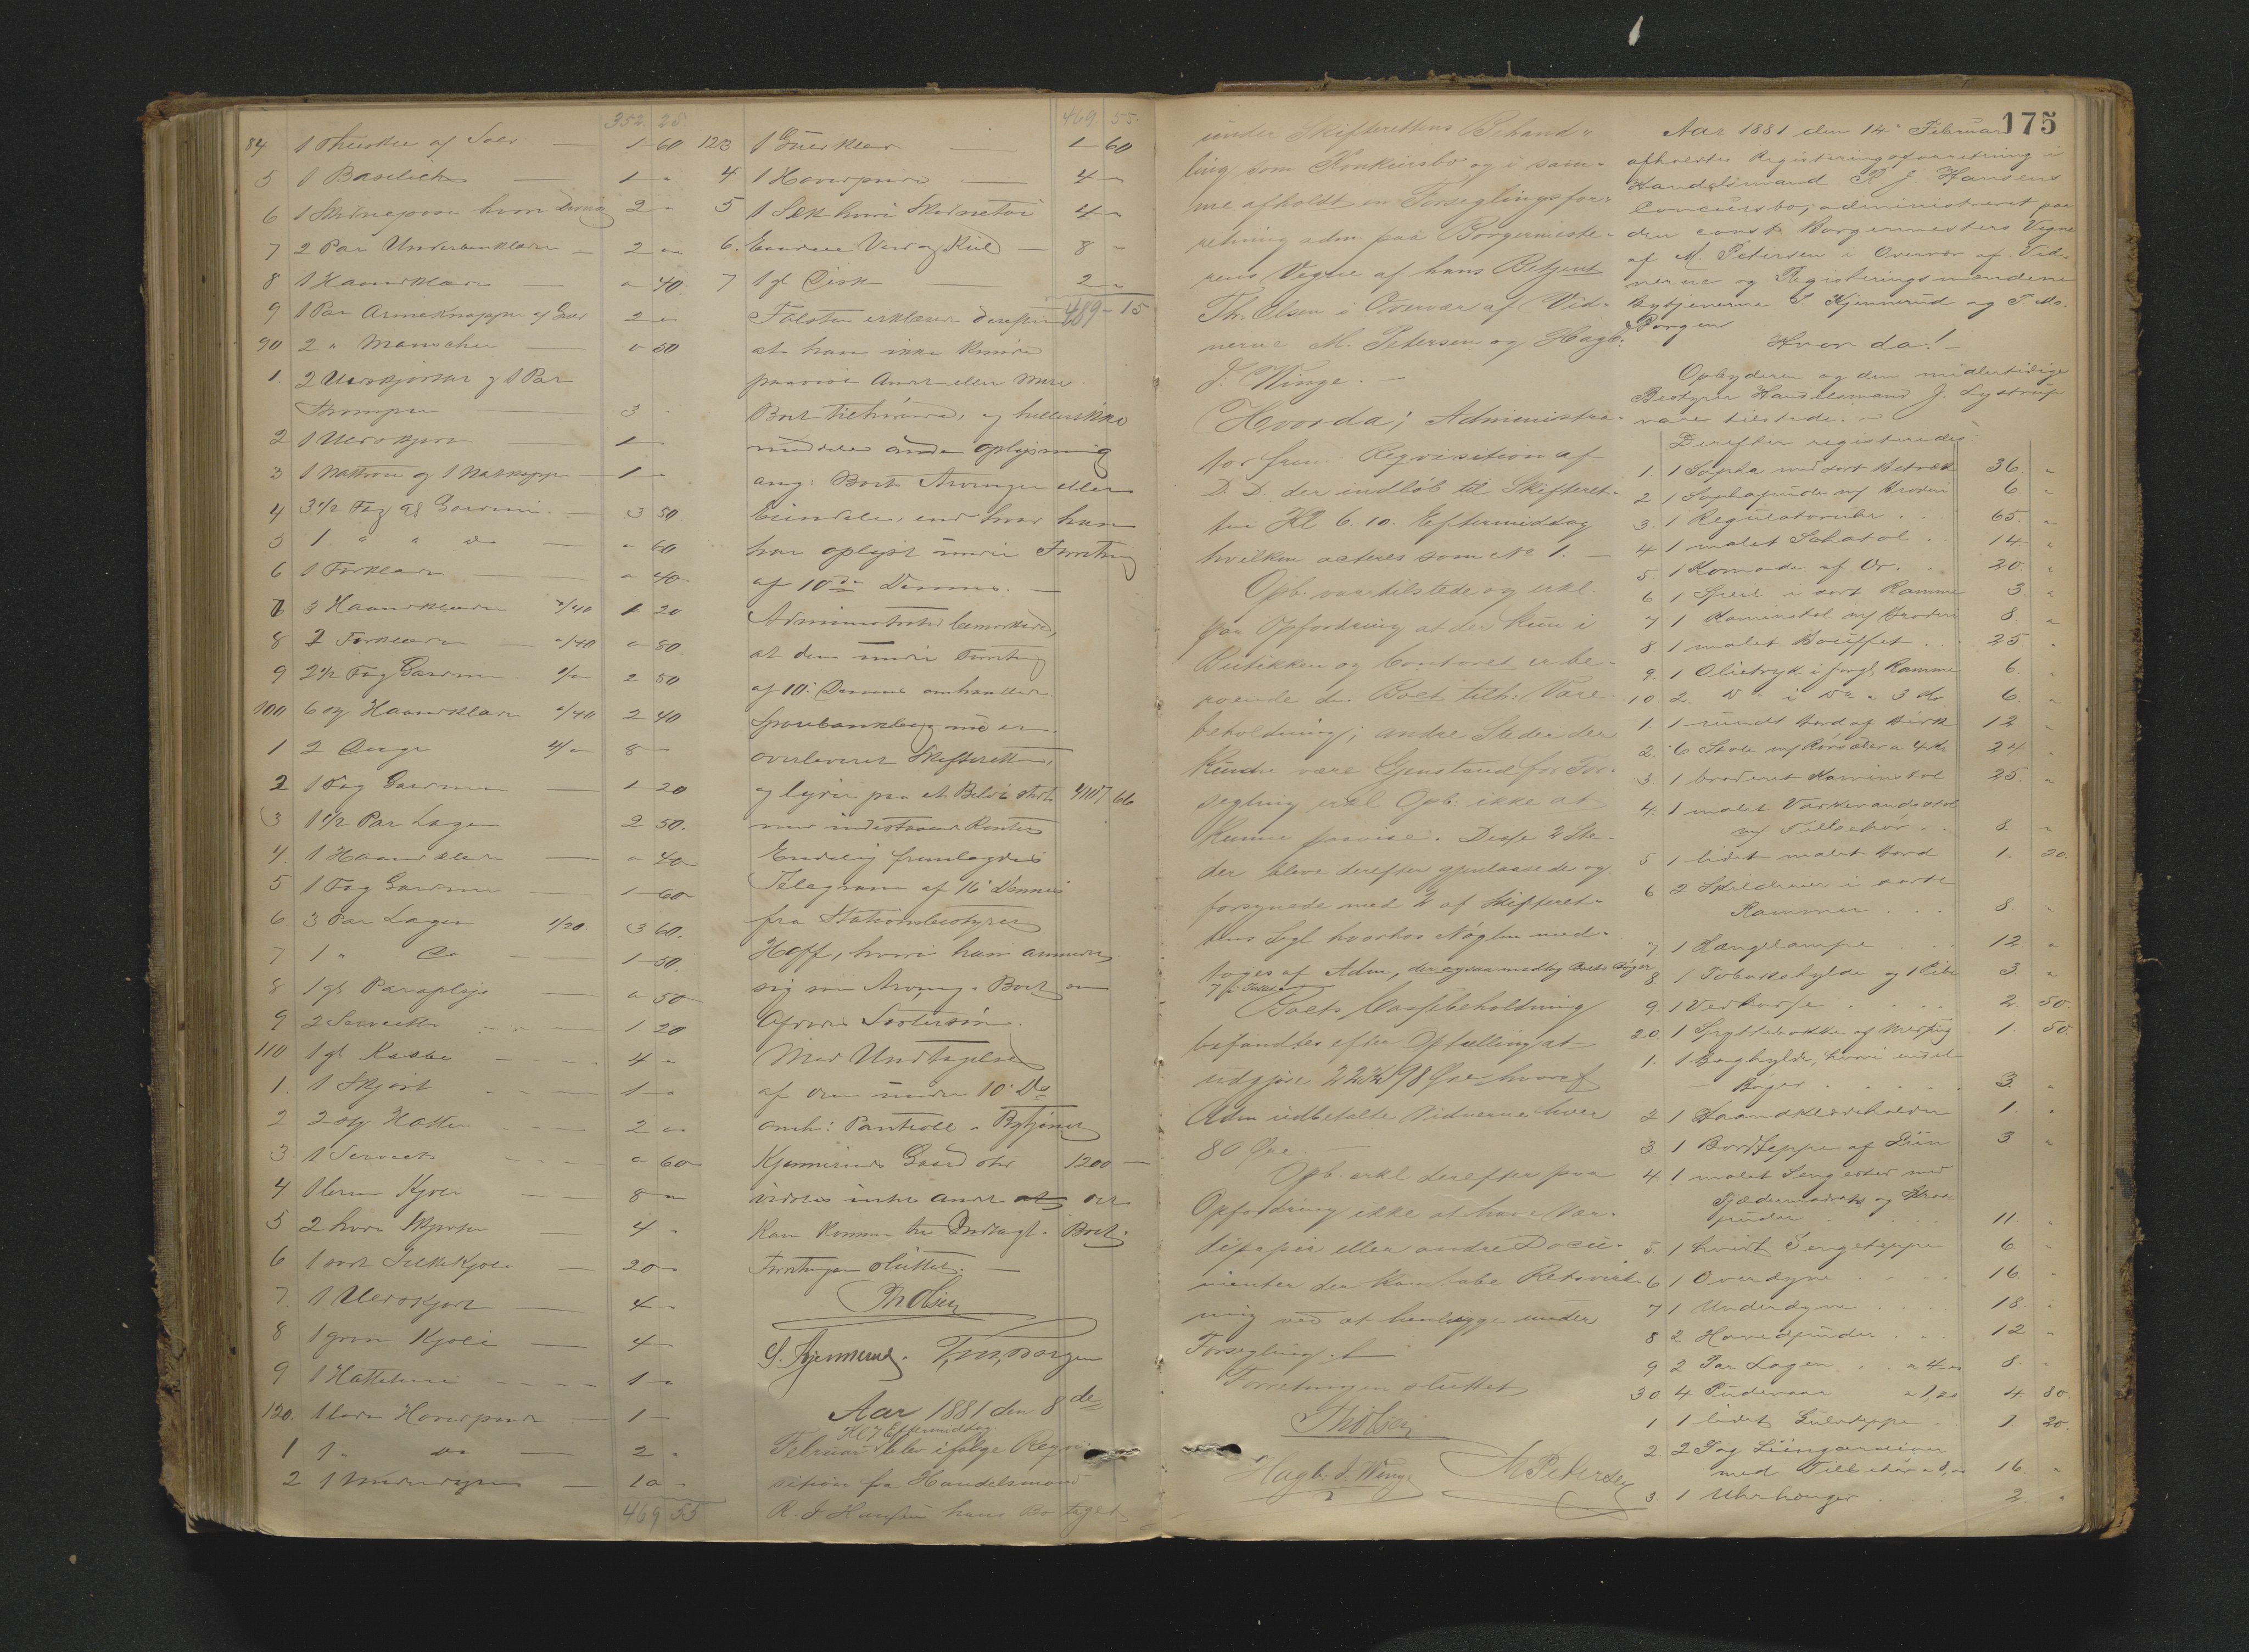 352. 25
84 1 Theeskee af Sølv — 1 60
5 1 — 1 "
6 1 Skindpose hvori 2 "
7 2 Par Underbenklæder — 2 "
8 1 Haandklæde — " 40.
9 1 Par Armeknapper af 2 "
90 2 " Manschet — " 50
1. 2 Uldskjorter og 1 Par
Strømper — 3 "
2 1 Uldskjort — 1 "
3 1 Nattrøie og 1 Natkappe — 1 "
4 3 1/2 Fag gl Gardiner — 3 50
5 1 " " do — " 60
6 1 Forklæde — " 40
7 3 Haandklæder "/40 1 20
8 2 Forklæder "/40 " 80
9 2 1/2 Fag Gardiner 2 50
100 6 Haandklæder "/40 2 40
1 2 Duge 4/" 8 "
2 1 Fag Gardiner — 1 20
3 1 1/2 Par Lagen 2 50.
4. 1 Haandklæde — " 40
5 1 Fag Gardiner — 1 60
6. 3 Par Lagen 1/20. 3 60.
7 1 " Do — 1 50.
8 1 gl Paraply — " 50
9 2 Servietter 1 20
110 1 gl Kaabe 4 "
1. 1 Skjørt 1 "
2 2 Hatter 2 "
3. 1 Serviet " 60
4 1 Kjole 8 "
5 2 hvide Skjørter — 4 "
6 1 sort Silkekjole — 20 "
7. 1 Uldskjort — 4 "
8 1 grøn Kjole — 4 "
9 1 1 "
120. 1 Hovedpude — 1 "
1 1 " do — 2 "
2 1 Underdyne — 10 "
469 55
469. 55.
123 1 — 1 60
4 1 Hovedpude — 4 "
5 1 Sæk hvori Skidnetøi 4 "
6. Endeel Ved og Kul — 8 "
7 1 gl Disk — 2 "
489 - 15
Falster erklærede derefter
at han ikke kunde
paavise Andet eller Mere
Boet tilhørende, og heller ikke
meddele anden Oplysning
ang: Boets Arvinger eller
Eiendele, end hvad han
har oplyst under Forretning
af 10de Dennes. —
Administrator bemærkede,
at den under Forretning
af 10. Dennes omhandlede
Sparebankbog nu er
overleveret Skifteretten,
og lyder paa et Beløb stort 4117 66
med indestaaende Renter
Endelig fremlagdes
Telegram af 16 Dennes
fra Stationsbestyrer
Hoff, hvori han anmelder
sig som Arving i Boet som
Afdødes Søstersøn.
Med Undtagelse
af den under 10. Ds
omh: Pantobl. i Bytjener
Kjenneruds Gaard stor 1200 —
vidstes intet andet at der
kan komme til Indtægt i Boet.
Forretningen sluttet. —
Th Olsen
S. Kjennerud. T. M. Borgen
Aar 1881 den 8de
Kl 7 Eftermiddag
Februar blev ifølge Reqvi-
sition fra Handelsmand
R. J Hansen hans Bo taget
under Skifterettens Behand-
ling som Konkursbo og i sam-
me afholdt en Forseglingsfor-
retning adm. paa Borgermeste-
rens Vegne af hans Betjent
Th. Olsen i Overvær af Vid-
nerne M. Petersen og Hagb:
J. Winge. —
Hvorda; Administra-
tor frem. Reqvisition af
D. D. der indløb til Skifteret-
ten Kl 6.10. Eftermiddag
hvilken acteres som No 1. —
Opb. var tilstede og erkl.
paa Opfordring at der kun i
Butikken og Contoret er be-
roende den Boet tilh: Vare-
beholdning; andre Steder der
kunde være Gjenstand for For-
segling erkl Opb. ikke at
kunne paavise. Disse 2 Ste-
der bleve derefter gjenlaasede og
forsynede med 2 af Skifteret-
tens Segl hvorhos Nøglen med-
toges af Adm, der ogsaa medtog Boets Bøger
7 i Tallet
Boets Cassebeholdning
befandtes efter Optælling at
udgjøre 22 Kr 98 Øre hvoraf
Adm udbetalte Vidnerne hver
80 Øre. —
Opb. erkl derefter paa
Opfordring ikke at have Vær-
dipapir eller andre Docu-
menter der kan have Retsvirk-
ning ved at henligge under
Forsegling. —
Forretningen sluttet
Th Olsen
Hagb. J. Winge M Petersen
175
Aar 1881 den 14 Februar
afholdtes Registreringsforretning i
Handelsmand R J. Hansens
Concursbo, administreret paa
den const. Borgermesters Vegne
af M. Petersen i Overvær af Vid-
nerne og Registreringsmændene
Bytjenerne S. Kjennerud og T. M.
Borgen
Hvor da! —
Opbyderen og den midlertidige
Bestyrer Handelsmand J. Lystrup
vare tilstede. —
Derefter registreredes:
1. 1 Sopha med sort Betræk 36. "
2 1 Sophapude m/ Broderi 6 "
3. 1 Regulatoruhr 65. "
4 1 malet Schatol 14 "
5. 1 Komode af Or. 20. "
6 1 Speil i sort Ramme 3. "
7 1 Kaminstol m/ Broderi 8. "
8 1 malet Bouffet 25. "
9. 1 Olietryk i forgt Ramme 6. "
10 2 Do i Do a 3 Kr 6. "
1. 1 rundt Bord af Birk 12 "
2. 6 Stole m/ Rørsæder a 4 Kr 24. "
3. 1 broderet Kaminstol 25. "
4. 1 malet Vaskevandsstol
m/ Tilbehør 8. "
5 1 lidet malet Bord 1. 20.
6 2 Skilderier i sorte
Rammer 8. "
7 1 Hængelampe 12 "
8 1 Tobakshylde og 1 Pibe 3. "
9. 1 Vedkasse 2. 50.
20. 1 Spyttebakke af Messing 1. 50.
1. 1 Boghylde, hvori endel
Bøger 3. "
2 1 Haandklædeholder 1. "
3. 1 Bordteppe af Liin 3 "
4. 1 malet Sengested med
Fjædermadrats og
puder 11. "
5. 1 hvidt Sengeteppe 6. "
6 1 Overdyne 16. "
7 1 Underdyne 18. "
8 2 Hovedpuder 12 "
9 2 Par Lagen a 4 8. "
30. 4 Pudevaar a 1,20 4 80.
1 1 lidet Gulvteppe 1. 20.
2. 2 Fag Liingardiner
med Tilbehør 16. "
3. 1 Uhrhænger 2. "